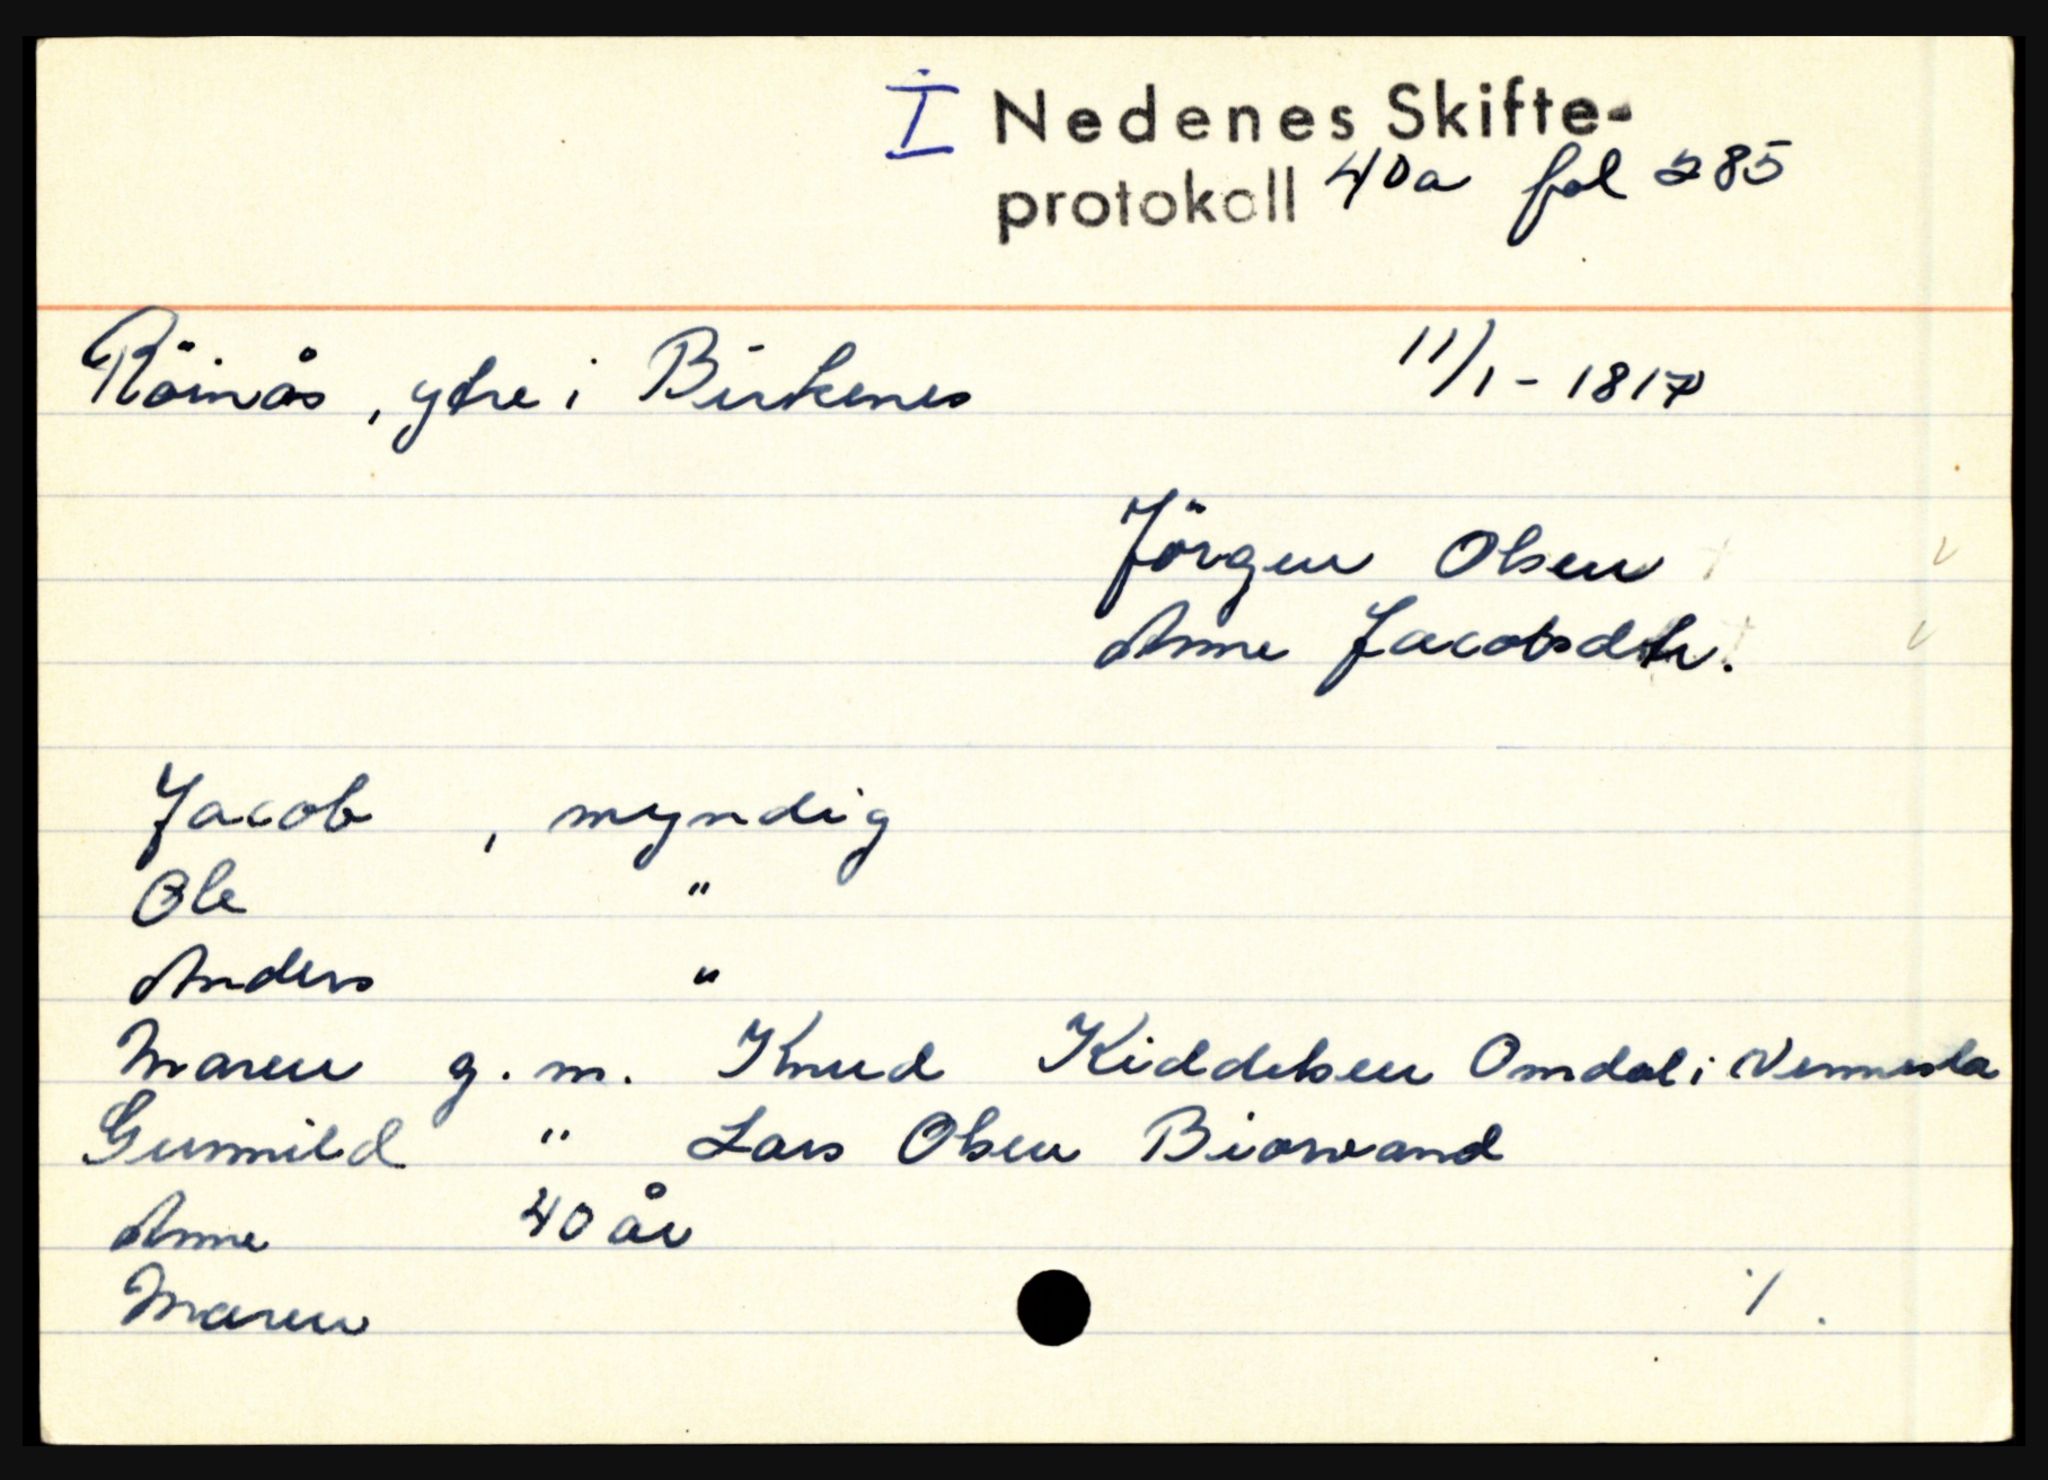 I Nedenes Skifte-
protokoll 40a fol 285
Röinås, ytre i Birkenes 11/1 - 1817
Jörgen Olsen
Anne Jacobsdtr.
Jacob , myndig
Ole "
Anders "
Maren g. m. Knud Kiddelsen Omdal i Vennesla
Gunnild " Lars Olsen Biorvand
Anne 40 år
Maren